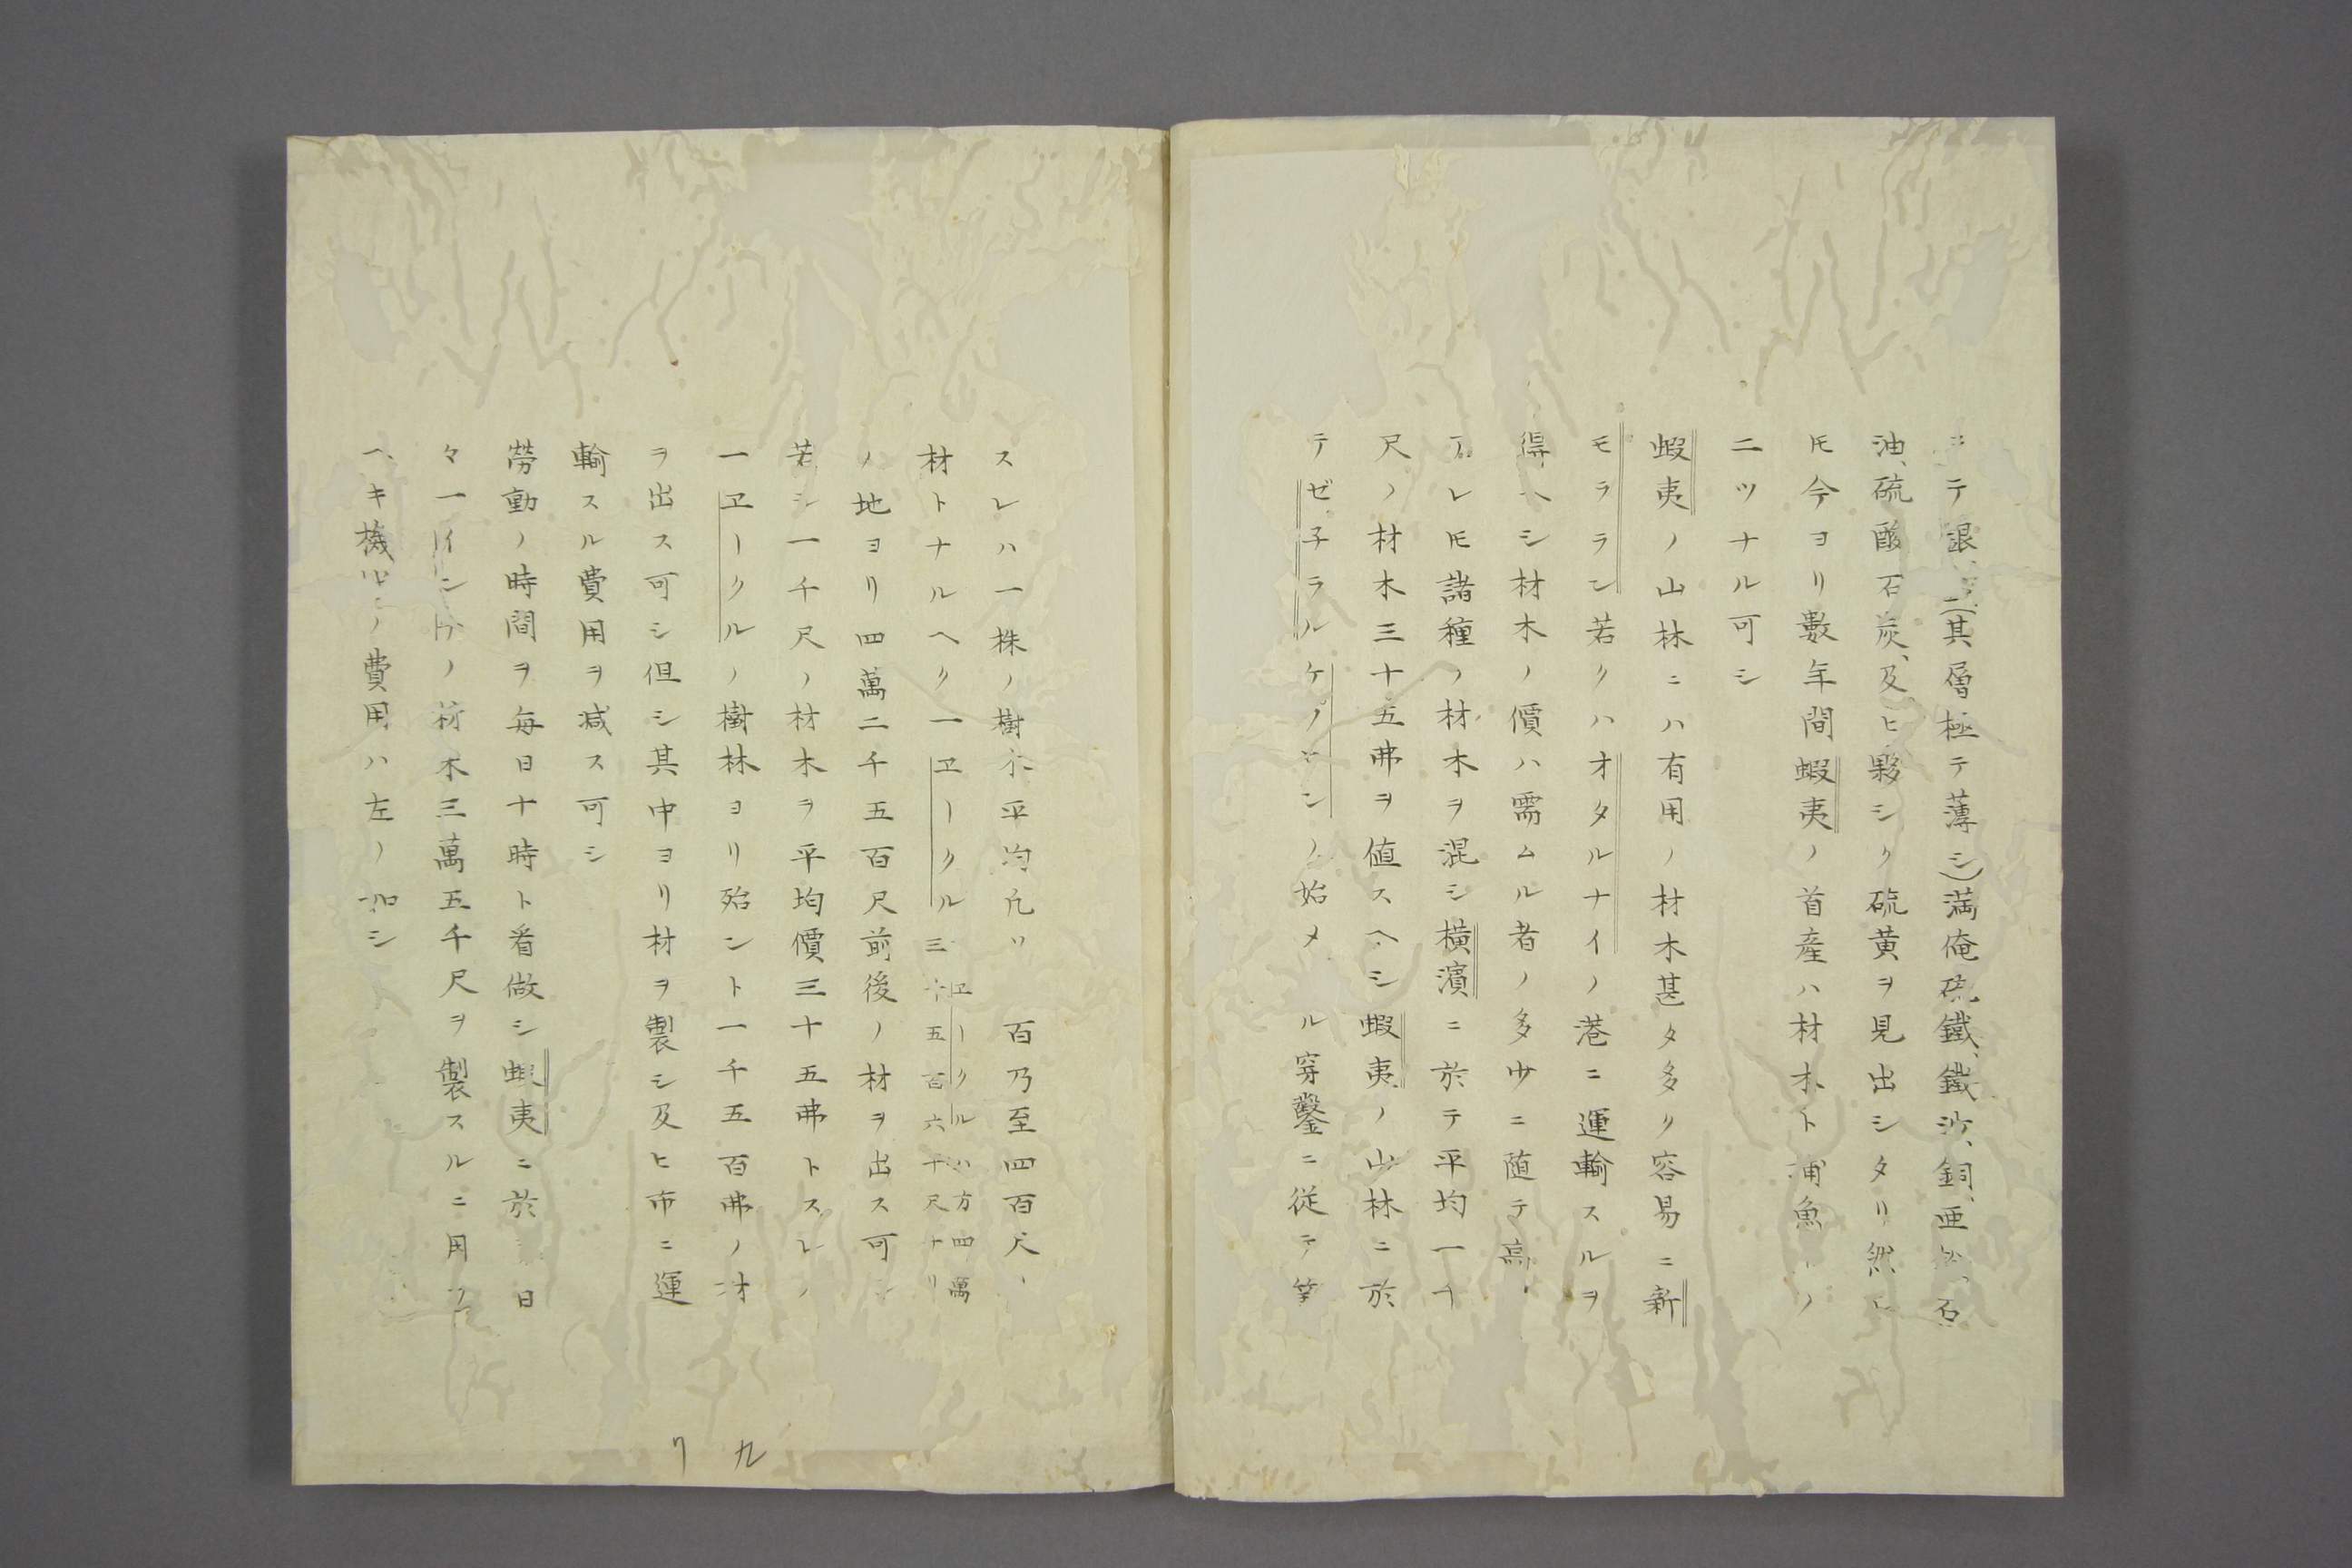 テ銀、(其層極テ薄シ)満俺硫鐵、鐵沙、銅、亜鉛、石
油、硫酸石炭、及ヒ夥シク硫黄ヲ見出シタリ然
𪜈今ヨリ數年間蝦夷ノ首産ハ材木ト浦魚ノ
二ツナル可シ
蝦夷ノ山林ニハ有用ノ材木甚タ多ク容易ニ新
モララン若クハオタルナイノ港ニ運輸スルヲ
得ヘシ材木ノ價ハ需ムル者ノ多少ニ随テ高
アレ𪜈諸種ノ材木ヲ混シ橫濱ニ於テ平均一千
尺ノ材木三十五弗ヲ値スヘシ蝦夷ノ山林ニ於
テゼ子ラルケプロンノ始メ ル穿鑿ニ従テ筭
スレハ一株ノ樹木平均凡ソ 百乃至四百尺
材トナルヘク一ヱークル三 ヱークルハ方四萬 五百六十尺ナリ
ノ地ヨリ四萬二千五百尺前後ノ材ヲ出ス可シ
若シ一千尺ノ材木ヲ平均價三十五弗トスレハ
一ヱークルノ樹林ヨリ殆ント一千五百弗ノ材
ヲ出ス可シ但シ其中ヨリ材ヲ製シ及ヒ市ニ運
輸スル費用ヲ減ス可シ
勞動ノ時間ヲ每日十時ト看做シ蝦夷ニ於 日
々一インチノ板木三萬五千尺ヲ製スルニ用フ
ヘキ機 ノ費用ハ左ノ如シ
九
リ